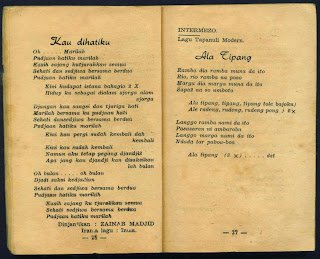 Kau dihatiku
Oh . . . . Marilah
Pudjaan hatiku marilah
Kasih sajang kutjurahkan semua
Sehati dan sedjiwa bersama berdua
Pudjaan hatiku marilah
Kini hadapat istana bahagia 2 X
Hidup ku sebagai didalam sjorga alam
sjorga
Djangan kau sangsi dan tjuriga hati
Marilah bersama ku pudjaan hati
Sehati dansedjiwa bersama berdua
Pudjaan hatiku marilah
Kini kau pergi sudah kembali dah
kembali
Kini kau sudah kembali
Namun aku tetap pegang djandji
Apa jang kau djandji kan disaksikan
leh bulan
Oh bulan . . . . . oh bulan
Djadi saksi kedjadian
Sehati dan sedjiwa bersama berdua
Pudjaan hatiku marilah
Kasih sajang ku tjurahkan semua
Sehati sedjiwa bersama berdua
Pudjaan hatiku marilah
Dinjanjikan : ZAINAB MADJID
Irama lagu : Inua.
— 28 —
INTERMEZO.
Lagu Tapanuli Modern.
Ala Tipang
Rambu dia rambu muna da ito
Rio, rio rambu na poso
Marga dia marga muna da ito
Sapai na so umboto
Ala tipang, tipang, tipang tole hajoku)
Ale rudeng, rudeng, rudeng pong ) 2 X
Langge rambu nami da ito
Pasuuran ni ambaroba
Langge marga nami da ito
Naduda tor paboa-boa
Ala tipang (2 x) . . . . . . dst
— 17 —